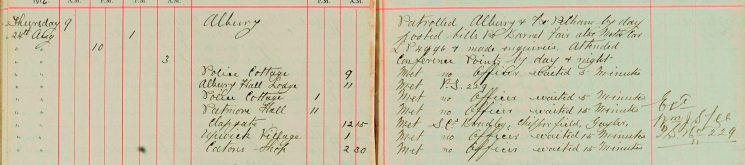 1916. A.M. P.M. A.M. P.M. A.M. P.M.
Thursday 9 Albury Patrolled, Albury & Fur Pelham by day
24th Aug 1 posted bills re Barnet Fair also Motor Car
" " 10 L P 4996 & made inquiries. Attended
" " 3 Conference Points by day & night
" " Police Cottage 9 Met no Officer waited 5 Minutes
" " Albury Hall Lodge 11 Met P.S. 229
" " Police Cottage 1 Met no Officer waited 5 Minutes
" " Patmore Hall 11 Met no Officer waited 15 Minutes
" " Clapgate 12 15 Met S.Cs Chipperfield,
" " Upwick Village 1 Met no Officer waited 15 Minutes
" " Shop 2 30 Met no Officer waited 15 Minutes
P.S. 229